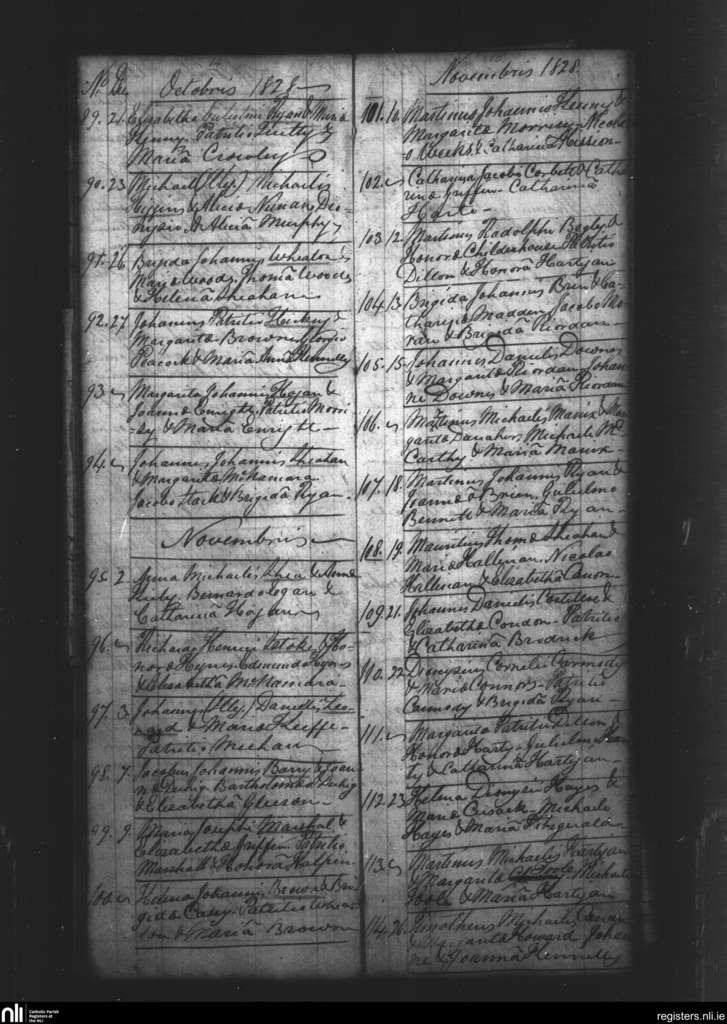 No. Die Octobris 1828
89. 21. Elizabetha Gulielmi Ryan & Maria
Kenny. Patritio Quilty &
Mariâ Crowley
90. 23 Michael (Illg.) Michaelis
Higgins & Alicia Nunan. Dio-
nysio & Aliciâ Murphy
91. 26. Brigida Johannis Wheaton &
Maria Woods. Thomâ Woods
& Helenâ Sheahan
92. 27. Johannes Patritii Hickey &
Margarita Browne.
Peacock & Mariâ Anna Kennelly
93. " Margarita Johannis Hogan &
Joanna Enright. Patritio Morris-
sey & Mariâ Enright
94. " Johannes Johannis Sheahan
& Margarita McNamara.
Jacobo Stack & Brigidâ Ryan
Novembris
95. 2 Anna Michaelis Shea & Anna
Ruby. Bernardo Hogan &
Catharinâ Hogan
96. " Richardus Henrici Stokes & Ho-
nora Hynes. Edmundo Hynes
& Elisabethâ McNamara
97. 3. Johannes (Illg.) Danielis Leo-
nard & Maria Keeffe.
Patritio Meehan
98. 7. Jacobus Johannis Barry & Joan-
na Duhig. Bartholomeo Duhig
& Elizabethâ Gleeson
99. 9. Maria Josephi Marshal &
Elizabetha Griffin. Patritio
Marshall & Honorâ Halpin
100. " Helena Johannis Brown & Bri-
gida Casey. Patritio Whea-
ton & Mariâ Brown
Novembris 1828
101. 10. Martinus Johannis Heeny &
Margarita Morrissy. Nicola-
o Weeks & Catharinâ Hession
102. " Catharina Jacobi Corbett & Catha-
rina Griffin. Catharinâ
Harte
103. 12. Martinus Radolphi Begley &
Honora Childerhouse. Patritio
Dillon & Honorâ Hartigan
104. 13 Brigida Johannis Brien & Ca-
tharina Madden. Jacobo Mo-
ran & Brigidâ Riordan
105. 15. Johannes Danielis Downes
& Margarita Riordan. Johan-
ne Downes & Mariâ Riordan
106. " Martinus Michaelis Manix & Mar-
garita Danaher. Michaele Mc
Carthy & Mariâ Manix
107. 18. Martinus Johannis Ryan &
Joanna O Brien. Gulielmo
Bennett & Mariâ Ryan
108. 19. Mauritius Thomæ Sheahan &
Maria Hallinan. Nicolao
Hallinan & Elizabethâ Canon
109. 21. Johannes Danielis Costelloe &
Elizabetha Condon. Patritio
& Catharinâ Brodrick
110. 22 Dionysius Cornelii Carmody
& Maria Connors. Patritio
Carmody & Brigidâ Ryan
111. " Margarita Patritii Dillon &
Honora Harty. Gulielmo Har-
ty & Catharinâ Hartigan
112. 23 Helena Dionysii Hayes &
Maria Cusack. Michaele
Hayes & Mariâ Fitzgerald
113. " Martinus Michaelis Hartigan
& Margarita O'Toole. Michaele
Toole & Mariâ Hartigan
114. 26. Timotheus Michaelis
& Margarita Howard. Johan-
ne & Joannâ Kennelly
nli Catholic Parish
Registers at
the NLI
registers.nli.ie